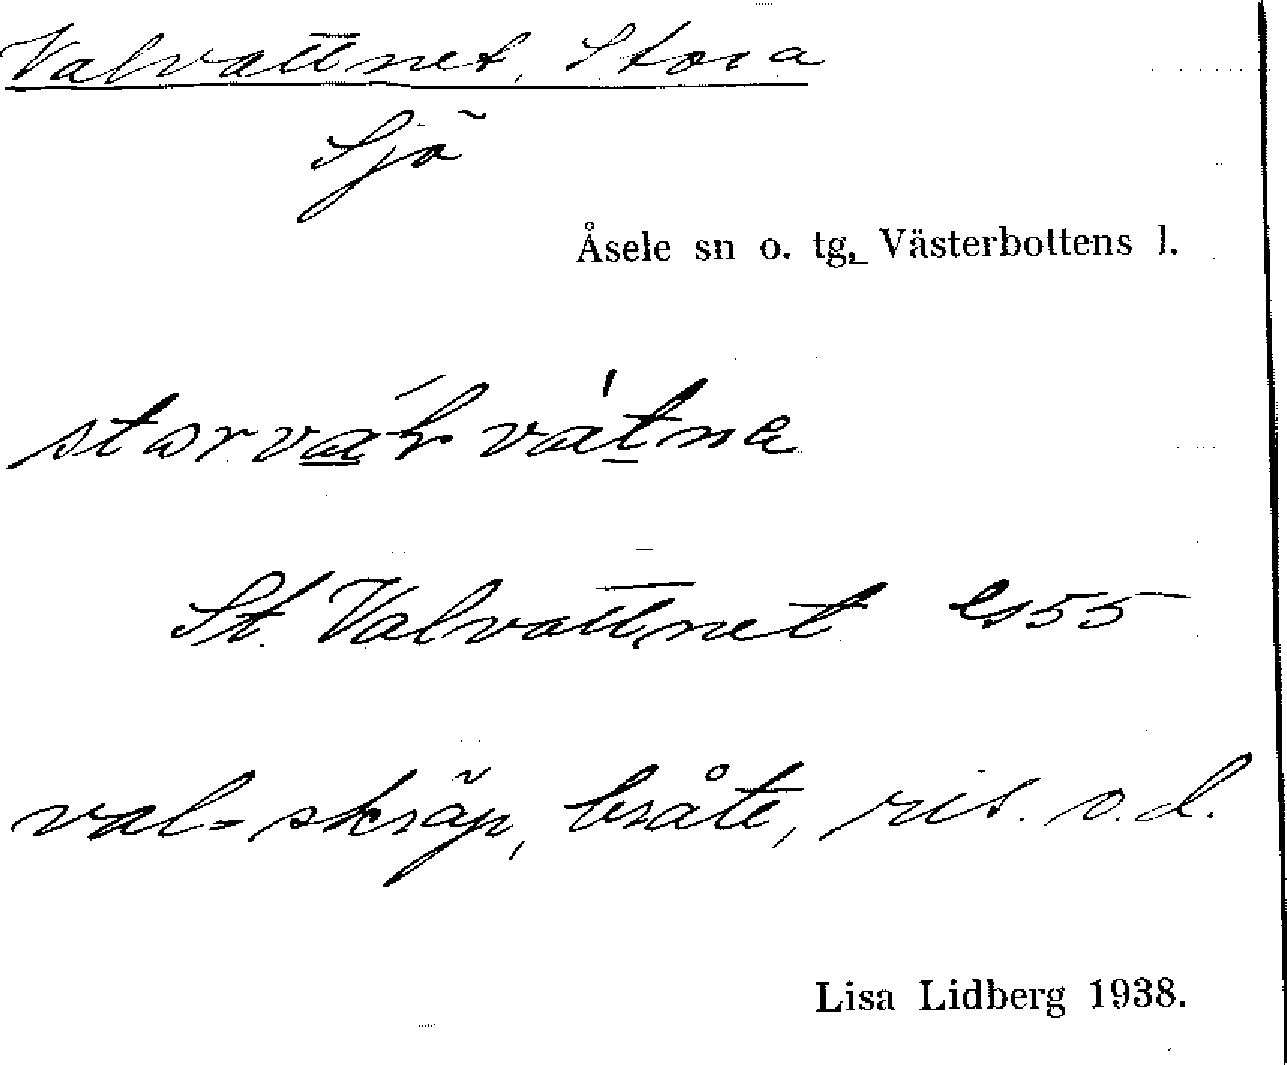 Valvattnet, Stora
Sjö
Åsele sn o. tg, Västerbottens l.
St. Valvattnet
val= skräp, bråte, ris. o.d.
Lisa Lidberg 1938.